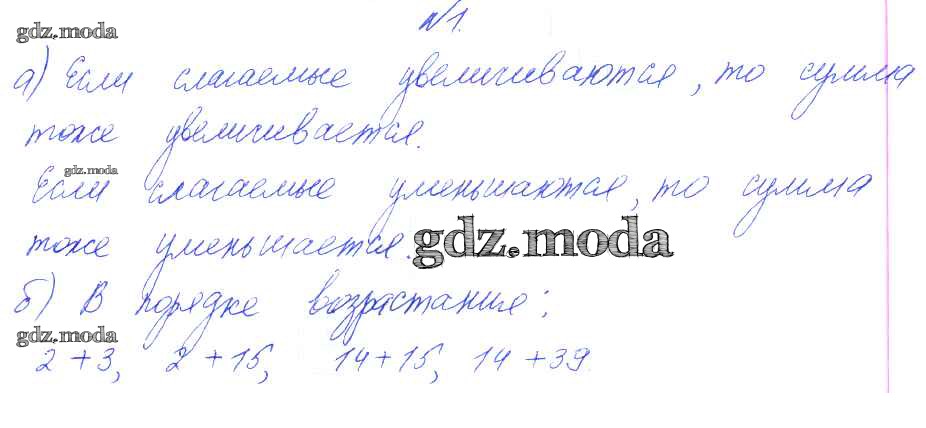 №1.
gdz.moda
а) Если слагаемые увеличиваются, то сумма
тоже увеличивается.
gdz.moda
Если слагаемые уменьшаются, то сумма
тоже уменьшается.
gdz.moda
б) В порядке возрастания:
gdz.moda
2+3, 2+15, 14+15, 14+39.